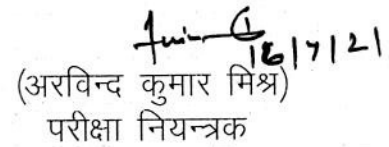 16/7/21
(अरविन्द कुमार मिश्र)
परीक्षा नियन्त्रक